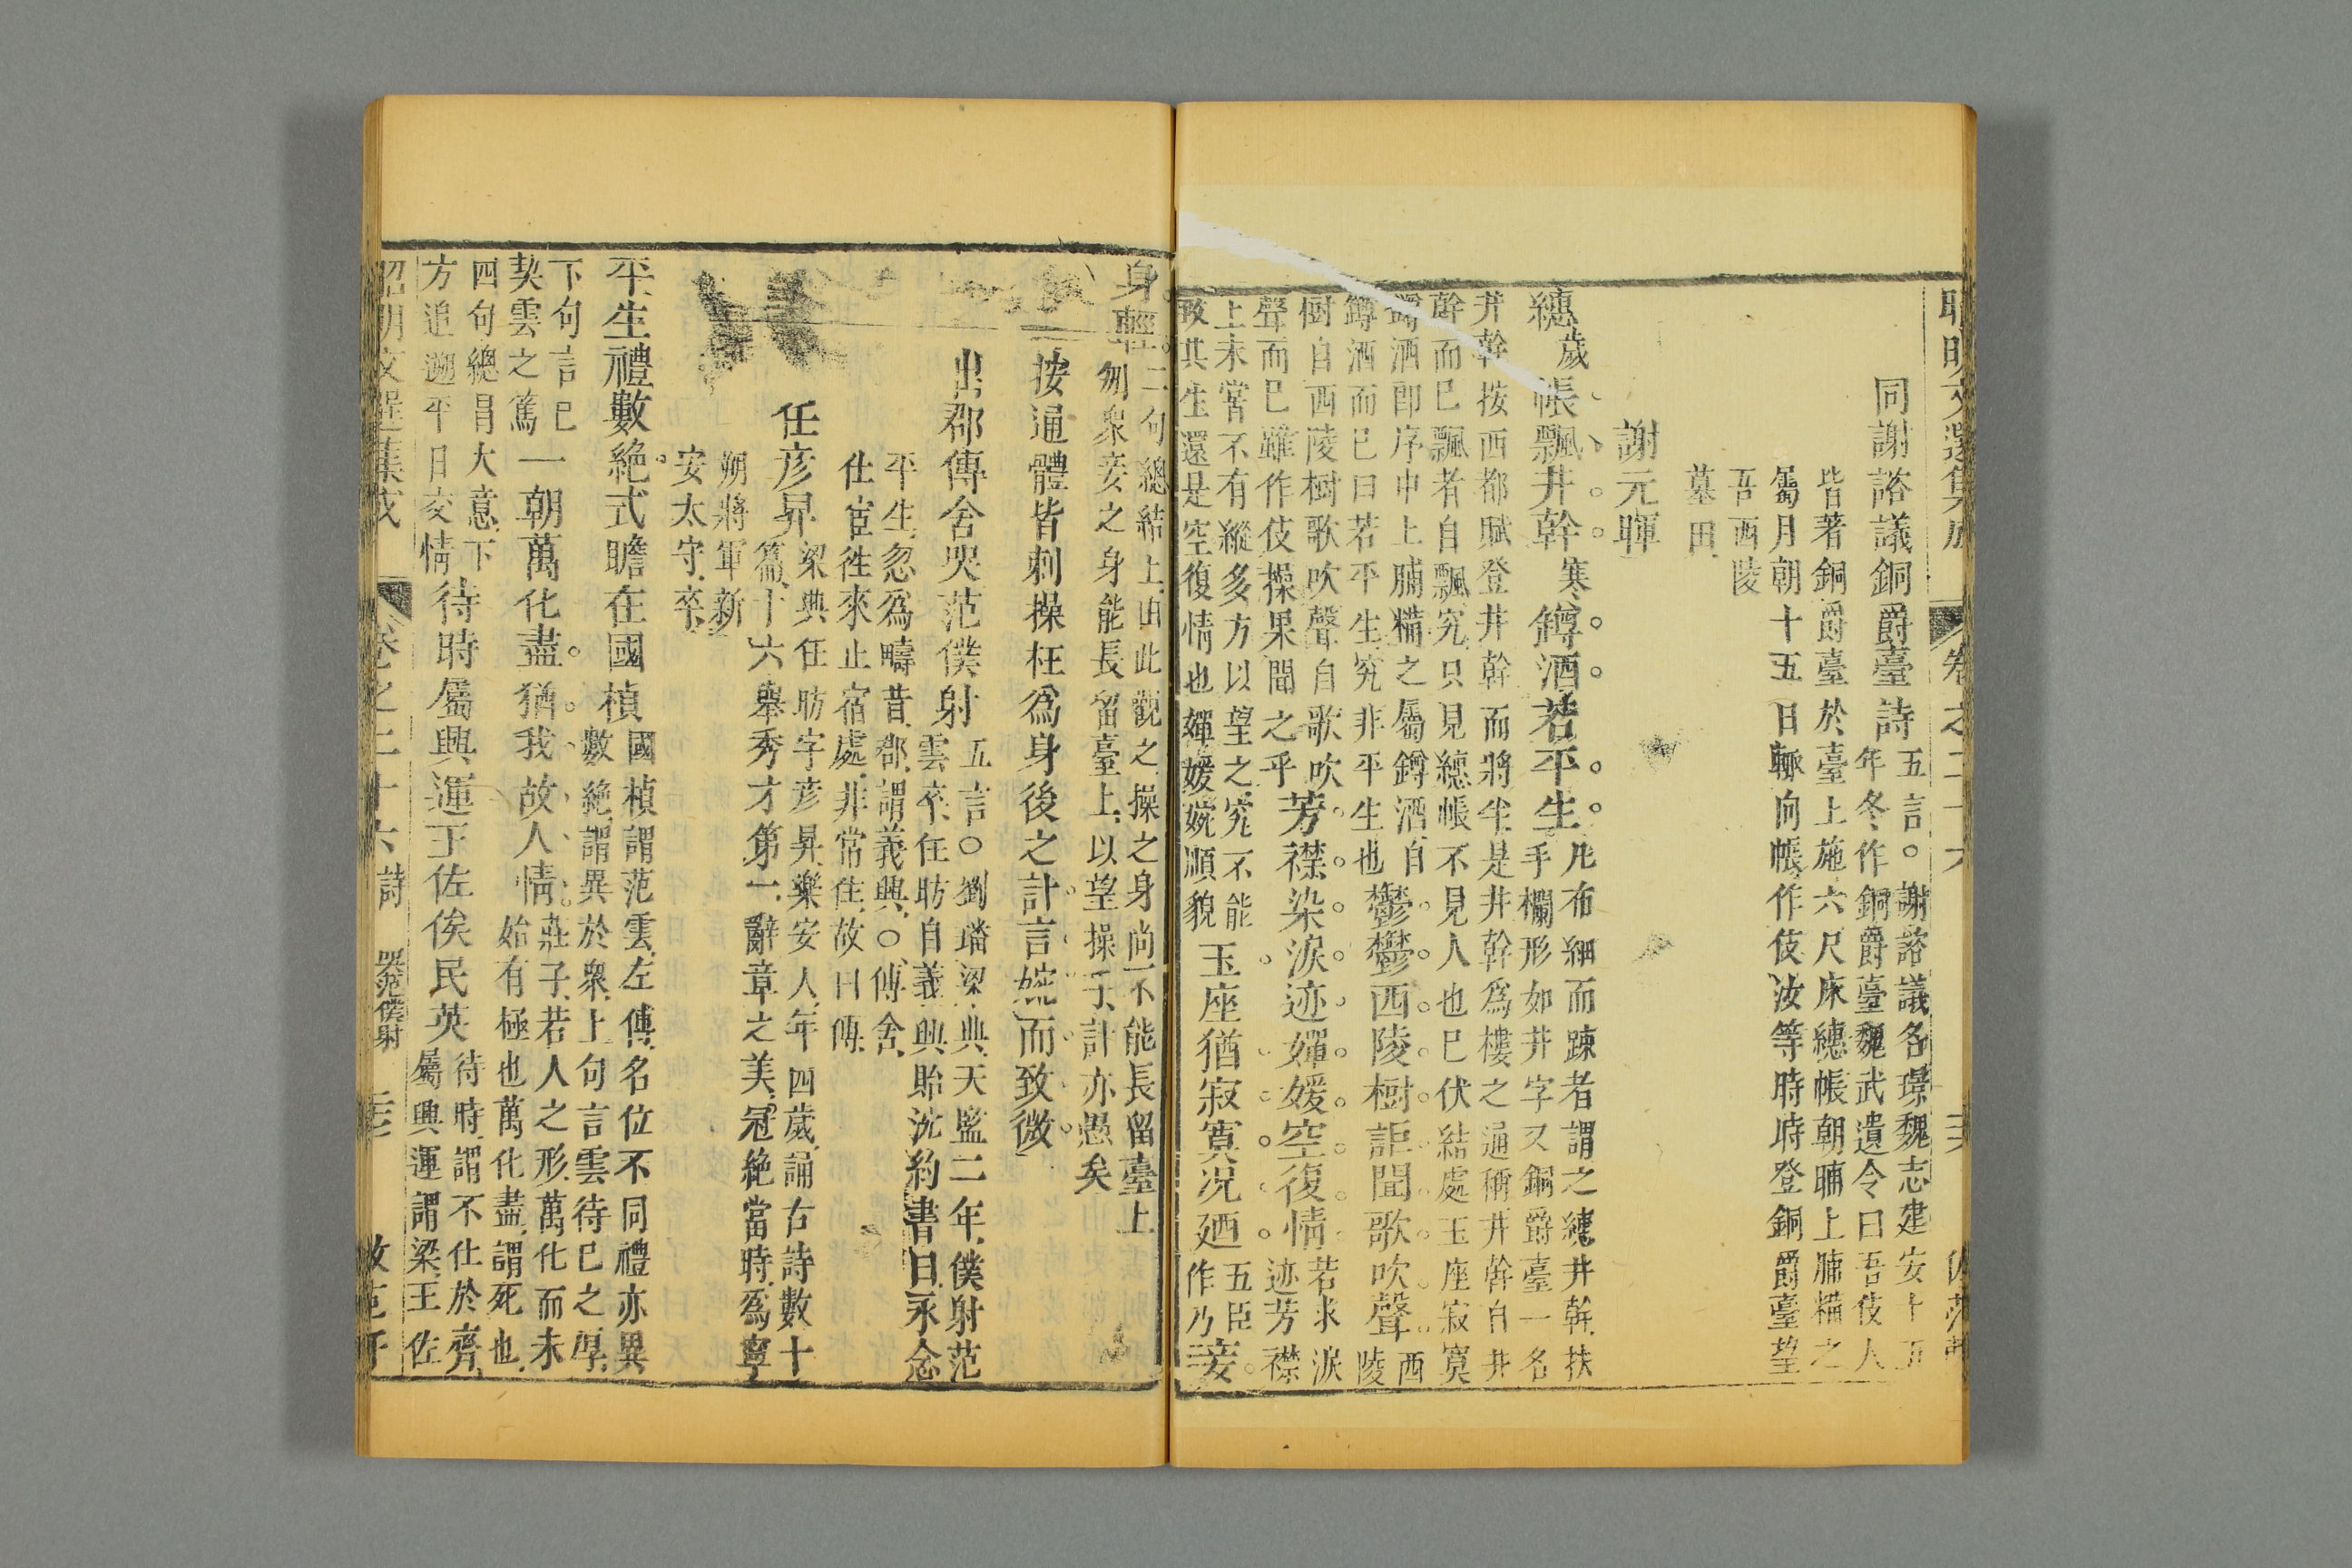 同謝諮議銅爵臺詩 五言。謝諮議名璟魏志建安十五
年冬作銅爵臺魏武遺令曰吾伎人
皆著銅爵臺於臺上施六尺床繐帳朝晡上脯糒之
屬月朝十五日輒向帳作伎汝等時時登銅爵臺望
吾西陵
墓田
謝元暉
繐歲帷飄井幹寒鐏酒若平生 凡布細而踈者謂之繐井幹扶
手欄形如井字又銅爵臺一名
井幹按西都賦登井幹而將半是井幹為樓之通稱井幹自井
幹而已飄者自飄究只見繐帳不見人也已伏結處玉座寂寞
鐏酒即序中上脯糒之屬鐏酒自
鐏酒而已曰若平生究非平生也 鬱鬱西陵樹詎聞歌吹聲 西
陵
樹自西陵樹歌吹聲自歌吹
聲而已雖作伎操果聞之乎 芳襟染淚迹嬋媛空復情 若求淚
迹芳襟
上未嘗不有縱多方以望之究不能
致其生還是空復情也嬋媛婉順貌 玉座猶寂寞况廼 五臣
作乃 妾
身輕 二句總結上由此觀之操之身尚不能長留臺上
矧衆妾之身能長留臺上以望操乎計亦愚矣
按通體皆刺操枉為身後之計言婉而致微
出郡傳舍哭范僕射 五言○劉璠梁典天監二年僕射范
雲卒任昉自義興貽沈約書曰永念
平生忽為疇昔郡謂義興○傳舍
仕宦徃來止宿處非常住故曰傳
任彦昇 梁典任昉字彦昇樂安人年四歲誦古詩數十
篇十六舉秀才第一辭章之美冠絶當時為寧
朔將軍新
安太守卒
平生禮數絶式瞻在國楨 國楨謂范雲左傳名位不同禮亦異
數絶謂異於衆上句言雲待已之厚
下句言已
契雲之篤 一朝萬化盡猶我故人情 莊子若人之形萬化而未
始有極也萬化盡謂死也
四句總冒大意下
方追遡平日交情 待時屬興運王佐俟民英 待時謂不仕於齊
屬興運謂梁王佐
昭明文選集成 卷之二十六 詩 哭范僕射